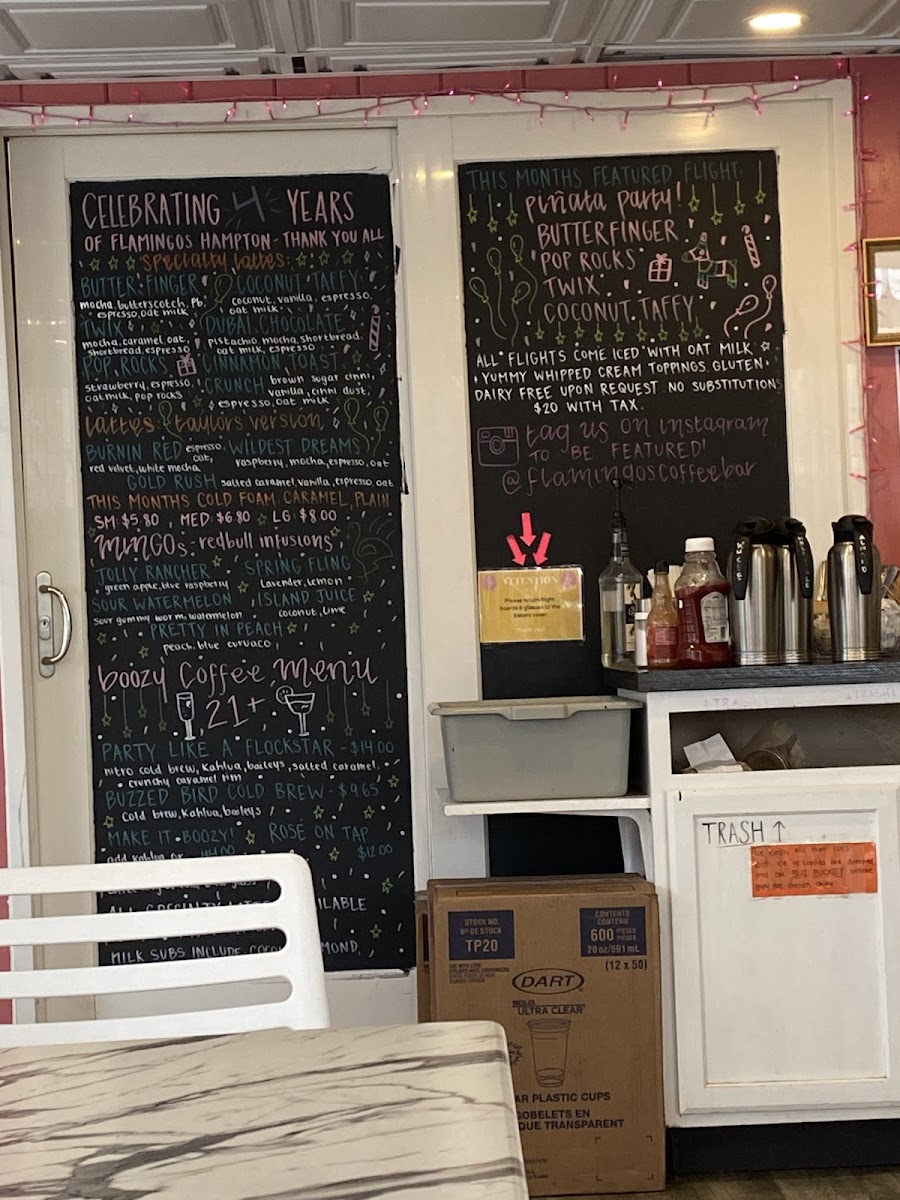 CELEBRATING 4 YEARS
OF FLAMINGOS HAMPTON - THANK YOU ALL
specialty lattes:
BUTTER FINGER
mocha, butterscotch, Pb,
espresso, oat milk
COCONUT TAFFY
coconut, vanilla, espresso,
oat milk
TWIX
mocha, caramel, oat,
shortbread, espresso
DUBAI CHOCOLATE
pistachio mocha, shortbread,
oat milk, espresso
POP ROCKS
strawberry, espresso,
oatmilk, pop rocks
CINNAMON TOAST
CRUNCH brown sugar cinni,
vanilla, cinni dust,
espresso, oat milk
lattes: taylors version
BURNIN RED espresso,
oat,
red velvet, white mocha
WILDEST DREAMS
raspberry, mocha, espresso, oat
GOLD RUSH salted caramel, vanilla, espresso, oat
THIS MONTHS COLD FOAM, CARAMEL, PLAIN
SM: $5.80, MED: $6.80 LG: $8.00
MINGOs: redbull infusions
JOLLY RANCHER
green apple, blue raspberry
SPRING FLING
Lavender, lemon
SOUR WATERMELON
sour gummy worm, watermelon
ISLAND JUICE
coconut, lime
PRETTY IN PEACH
peach, blue curuaco
boozy Coffee Menu
21+
PARTY LIKE A FLOCKSTAR - $14.00
nitro cold brew, Kahlua, baileys, salted caramel,
crunchy caramel rim
BUZZED BIRD COLD BREW - $9.65
Cold brew, Kahlua, baileys
MAKE IT BOOZY!
add Kahlua or
ROSÉ ON TAP
$12.00
MILK SUBS INCLUDE
THIS MONTHS FEATURED FLIGHT
piñata party!
BUTTERFINGER
POP ROCKS
TWIX
COCONUT TAFFY
ALL FLIGHTS COME ICED WITH OAT MILK
YUMMY WHIPPED CREAM TOPPINGS. GLUTEN
DAIRY FREE UPON REQUEST. NO SUBSTITUTIONS
$20 WITH TAX.
tag us on instagram
TO BE FEATURED!
@flamingoscoffeebar
ATTENTION
Please return flight
boards & glasses to the
bakery case!
Thank you!
WHOLE
ALMOND
TRASH ↑
STOCK NO.
Nº DE STOCK
TP20
CONTENTS
CONTENU
600 PIECES
PIÈCES
20 oz/591 mL
(12 x 50)
DART
SOLO
ULTRA CLEAR
AR PLASTIC CUPS
GOBELETS EN
QUE TRANSPARENT